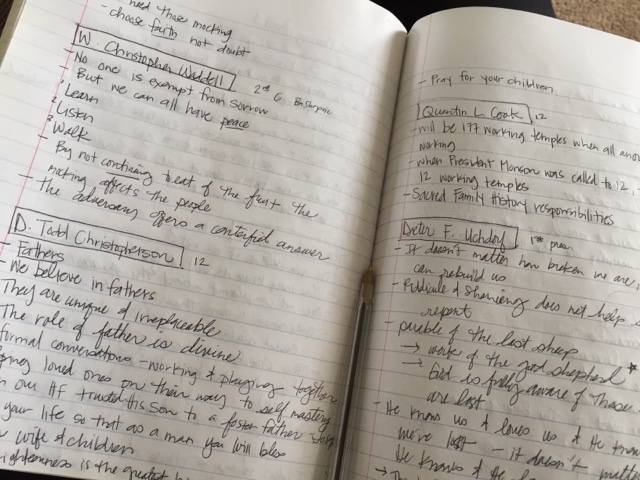 need those mocking
- choose faith not doubt
W. Christopher Waddell
2nd C.
- No one is exempt from sorrow
But we can all have peace
1 Learn
2 Listen
3 Walk
- By not continuing to eat of the fruit the
mocking affects the people
- The adversary offers a conterfiet answer
D. Todd Christopherson 12
- Fathers
- We believe in fathers
They are unique & irreplaceable
The role of father is divine
formal conversations - working & playing together
loved ones on their way to self mastery
our HF trusted His Son to a foster father
your life so that as a man you will bless
wife & children
is the greatest
- Pray for your children
Quentin L Cook 12
- will be 177 working temples when all
working
- when President Monson was called to 12,
12 working temples
- Sacred Family History responsibilities
Dieter F. Uchdorf
- It doesn't matter how broken we are,
can rebuild us
- Ridicule & Shaming does not help
repent
- parable of the lost sheep
→ work of the good shepherd *
→ God is fully aware of those
are lost
- He knows us & loves us & He knows
we're lost - it doesn't matter
He knows &